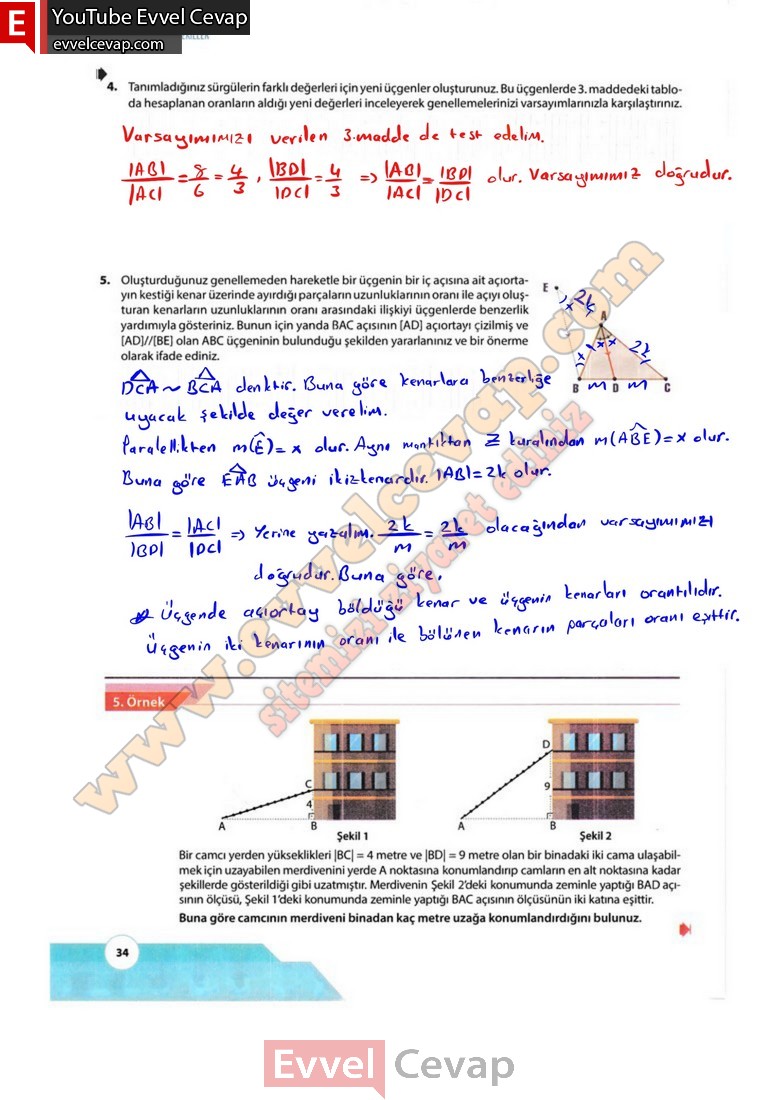 E YouTube Evvel Cevap
evvelcevap.com
4. Tanımladığınız sürgülerin farklı değerleri için yeni üçgenler oluşturunuz. Bu üçgenlerde 3. maddedeki tablo-
da hesaplanan oranların aldığı yeni değerleri inceleyerek genellemelerinizi varsayımlarınızla karşılaştırınız.
Varsayımımızı verilen 3.madde de test edelim.
|AB|/|AC| = 8/6 = 4/3, |BD|/|DC| = 4/3 => |AB|/|AC| = |BD|/|DC| olur. Varsayımımız doğrudur.
5. Oluşturduğunuz genellemeden hareketle bir üçgenin bir iç açısına ait açıorta-
yın kestiği kenar üzerinde ayırdığı parçaların uzunluklarının oranı ile açıyı oluş-
turan kenarların uzunluklarının oranı arasındaki ilişkiyi üçgenlerde benzerlik
yardımıyla gösteriniz. Bunun için yanda BAC açısının [AD] açıortayı çizilmiş ve
[AD]//[BE] olan ABC üçgeninin bulunduğu şekilden yararlanınız ve bir önerme
olarak ifade ediniz.
E x 2k
A
x x x 2k
B m D m C
DCA ~ BCA denktir. Buna göre kenarlara benzerliğe
uyacak şekilde değer verelim.
Paralellikten m(E) = x olur. Aynı mantıktan Z kuralından m(ABE) = x olur.
Buna göre EAB üçgeni ikizkenardır. |AB| = 2k olur.
|AB|/|BD| = |AC|/|DC| => Yerine yazalım. 2k/m = 2k/m olacağından varsayımımız
doğrudur. Buna göre,
* Üçgende açıortay böldüğü kenar ve üçgenin kenarları orantılıdır.
Üçgenin iki kenarının oranı ile bölünen kenarın parçaları oranı eşittir.
www.evvelcevap.com
sitemizi ziyaret ediniz
5. Örnek
C
4
A B
Şekil 1
D
9
A B
Şekil 2
Bir camcı yerden yükseklikleri |BC| = 4 metre ve |BD| = 9 metre olan bir binadaki iki cama ulaşabil-
mek için uzayabilen merdivenini yerde A noktasına konumlandırıp camların en alt noktasına kadar
şekillerde gösterildiği gibi uzatmıştır. Merdivenin Şekil 2'deki konumunda zeminle yaptığı BAD açı-
sının ölçüsü, Şekil 1'deki konumunda zeminle yaptığı BAC açısının ölçüsünün iki katına eşittir.
Buna göre camcının merdiveni binadan kaç metre uzağa konumlandırdığını bulunuz.
34
Evvel Cevap